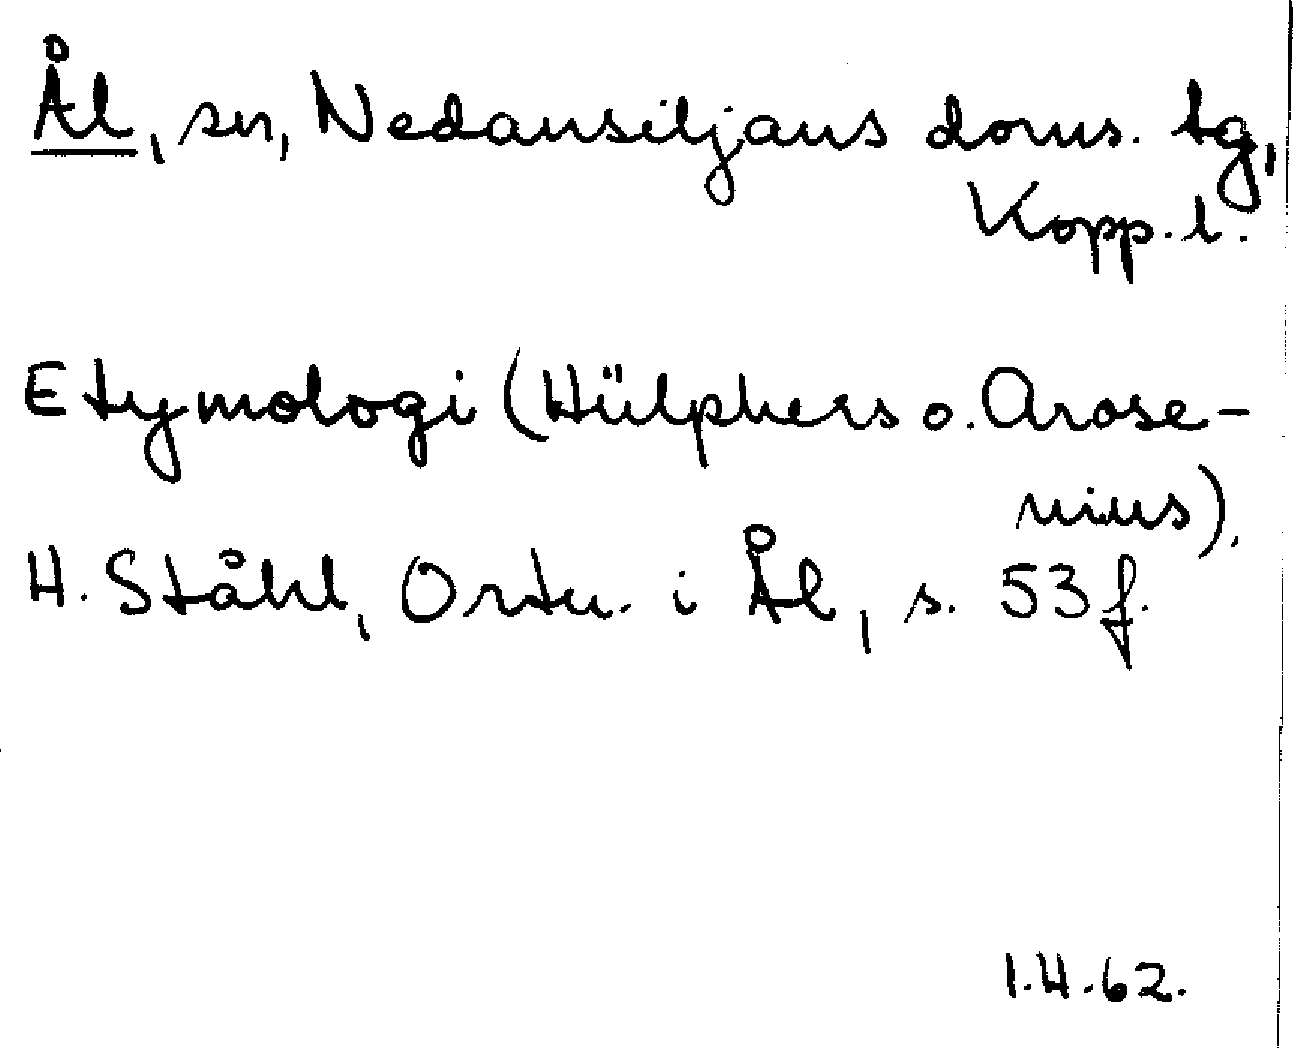 Ål, sn, Nedansiljans doms. tg,
Kopp. l.
Etymologi (Hülphers o. Arose-
nius).
H. Ståhl, Ortn. i Ål, s. 53 f.
I.H.62.